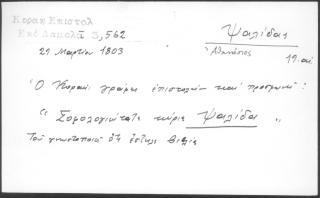 Κοραη Επιστολ
Εκδ Δαμαλᾶ Ι 3,562
Ψαλίδας
Ἀθανάσιος
21 Μαρτίου 1803
19. αἰ
Ὁ Κοραῆς γράφει ἐπιστολὴν καὶ προσφωνεῖ:
"Σοφολογιώτατε κύριε Ψαλίδα"
Τοῦ γνωστοποιεῖ ὅτι ἔστειλε βιβλία